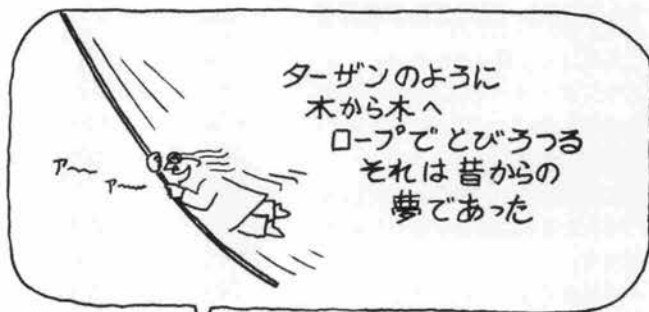 ターザンのように
木から木へ
ロープでとびうつる
それは昔からの
夢であった
ア〜〜
ア〜〜